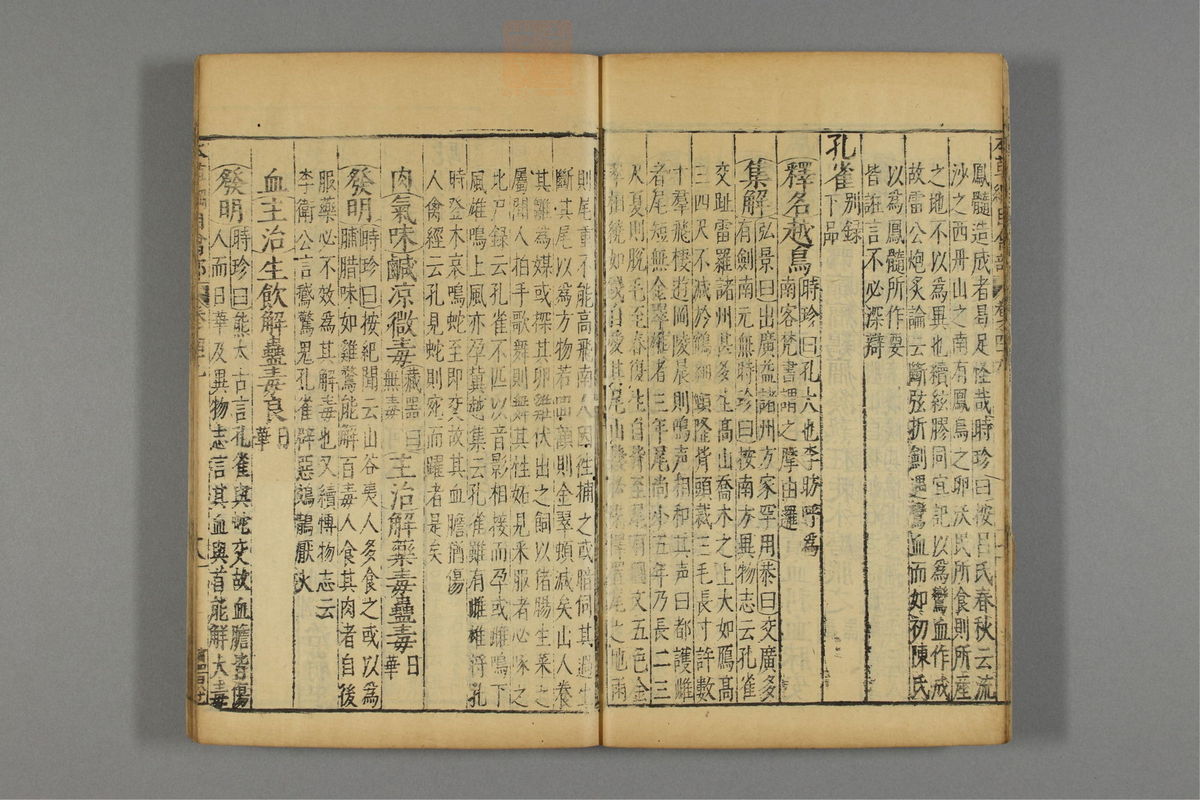 鳳髓造成者曷足怪哉時珍曰按呂氏春秋云流
沙之西丹山之南有鳳鳥之卵沃民所食則所產
之地不以為異也續絃膠洞冥記以為鸞血作成
故雷公炮炙論云斷弦折劍遇鸞血而如初陳氏
以為鳳髓所作要
皆誑言不必深辯
孔雀別錄下品
釋名越鳥時珍曰孔大也李昉呼為
南客梵書謂之摩由邏
集解弘景曰出廣益諸州方家罕用恭曰交廣多
有劍南元無時珍曰按南方異物志云孔雀
交趾雷羅諸州甚多生高山喬木之上大如鴈高
三四尺不減於鶴細頸隆背頭戴三毛長寸許數
十羣飛棲遊岡陵晨則鳴声相和其声曰都護雌
者尾短無金翠雄者三年尾尚小五年乃長二三
尺夏則脫毛至春復生自背至尾有圓文五色金
翠相繞如錢自愛其尾山棲必先擇置尾之地雨
則尾重不能高飛南人因往捕之或暗伺其過生
斷其尾以為方物若回顧則金翠頓減矣山人養
其雛為媒或探其卵雞伏出之飼以猪腸生菜之
屬聞人拍手歌舞則舞其性妬見采服者必啄之
北戶錄云孔雀不匹以音影相接而孕或雌鳴下
風雄鳴上風亦孕冀越集云孔雀雖有雌雄將乳
時登木哀鳴蛇至即交故其血膽猶傷
人禽經云孔見蛇則宛而躍者是矣
肉氣味鹹凉微毒藏器曰無毒主治解藥毒蠱毒日華
發明時珍曰按紀聞云山谷夷人多食之或以為
脯腊味如雞鶩能解百毒人食其肉者自後
服藥必不效為其解毒也又續博物志云
李衛公言鵞驚鬼孔雀辟惡鵁鶄厭火
血主治生飲解蠱毒良日華
發明時珍曰熊太古言孔雀與蛇交故血膽皆傷
人而日華及異物志言其血與首能解大毒